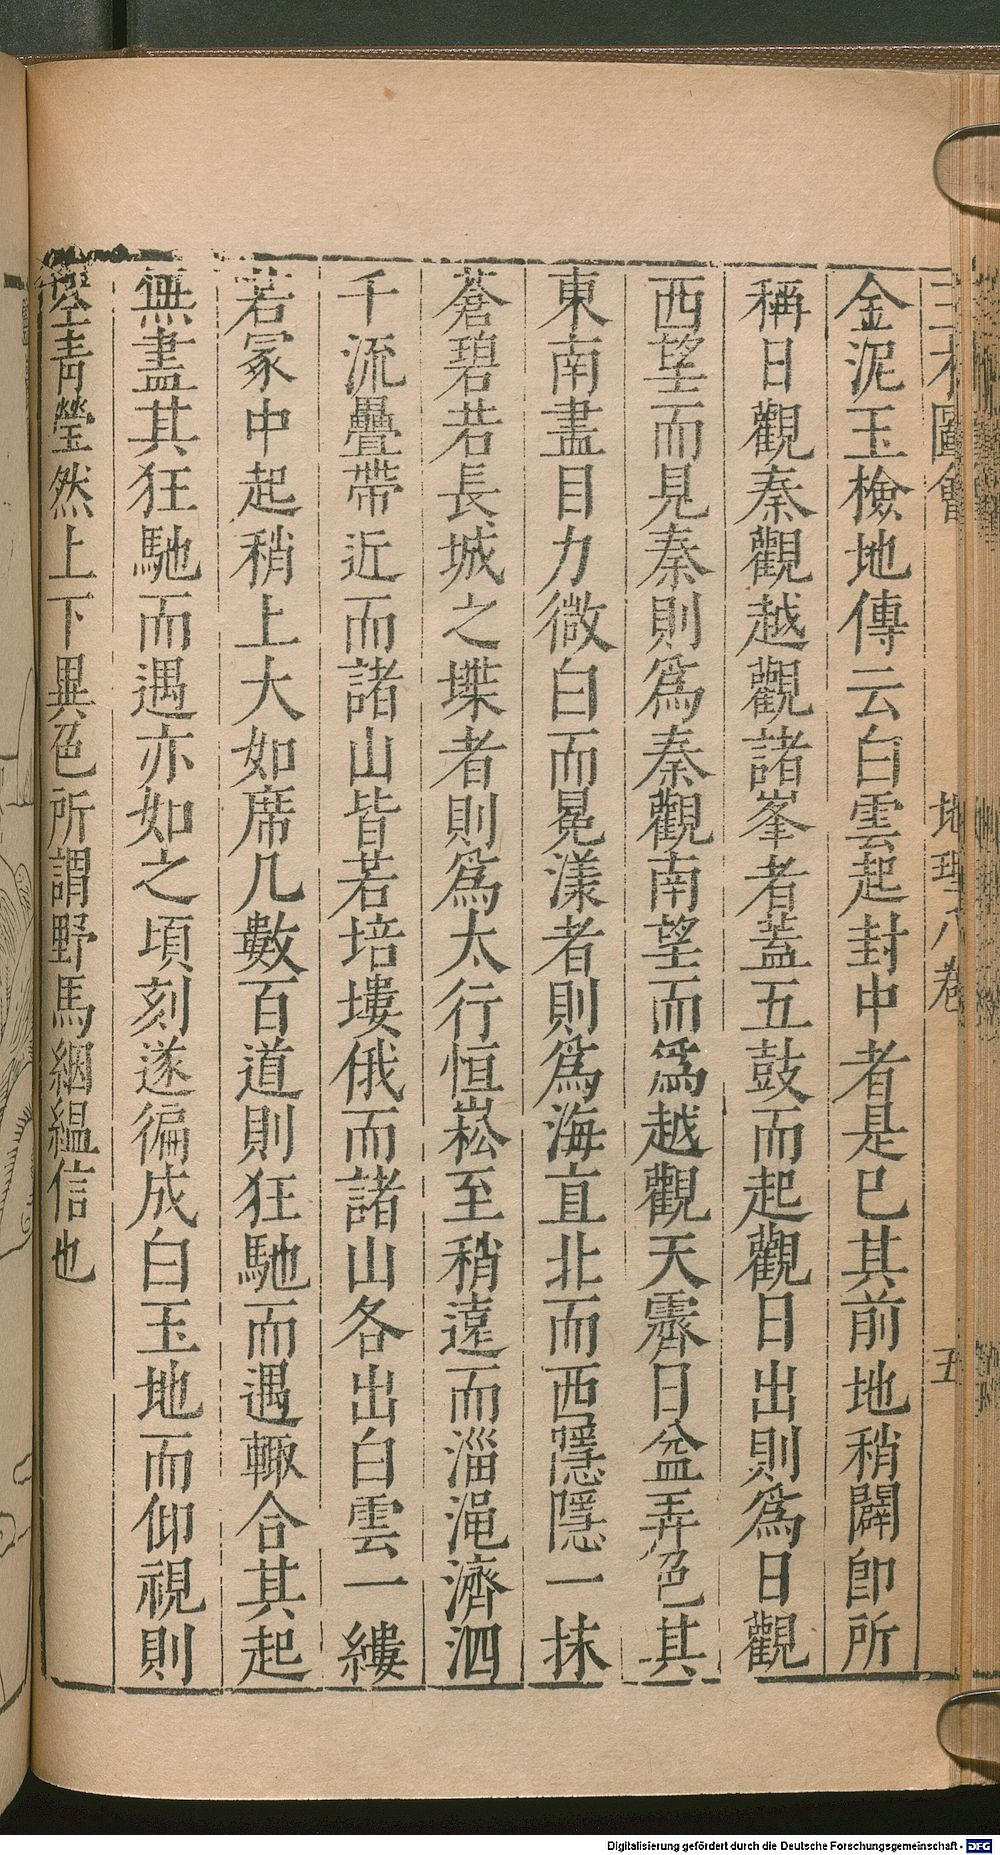 三才圖會 地理八卷 五
金泥玉檢地傳云白雲起封中者是已其前地稍闢卽所
稱日觀秦觀越觀諸峯者蓋五鼓而起觀日出則爲日觀
西望而見秦則爲秦觀南望而爲越觀天霽日益弄色其
東南盡目力微白而晃漾者則爲海直北而西隱隱一抹
蒼碧若長城之堞者則爲太行恒崧至稍遠而淄澠濟泗
千流疊帶近而諸山皆若培塿俄而諸山各出白雲一縷
若冢中起稍上大如席几數百道則狂馳而遇輙合其起
無盡其狂馳而遇亦如之頃刻遂徧成白玉地而仰視則
空青瑩然上下異色所謂野馬絪縕信也
Digitalisierung gefördert durch die Deutsche Forschungsgemeinschaft - DFG